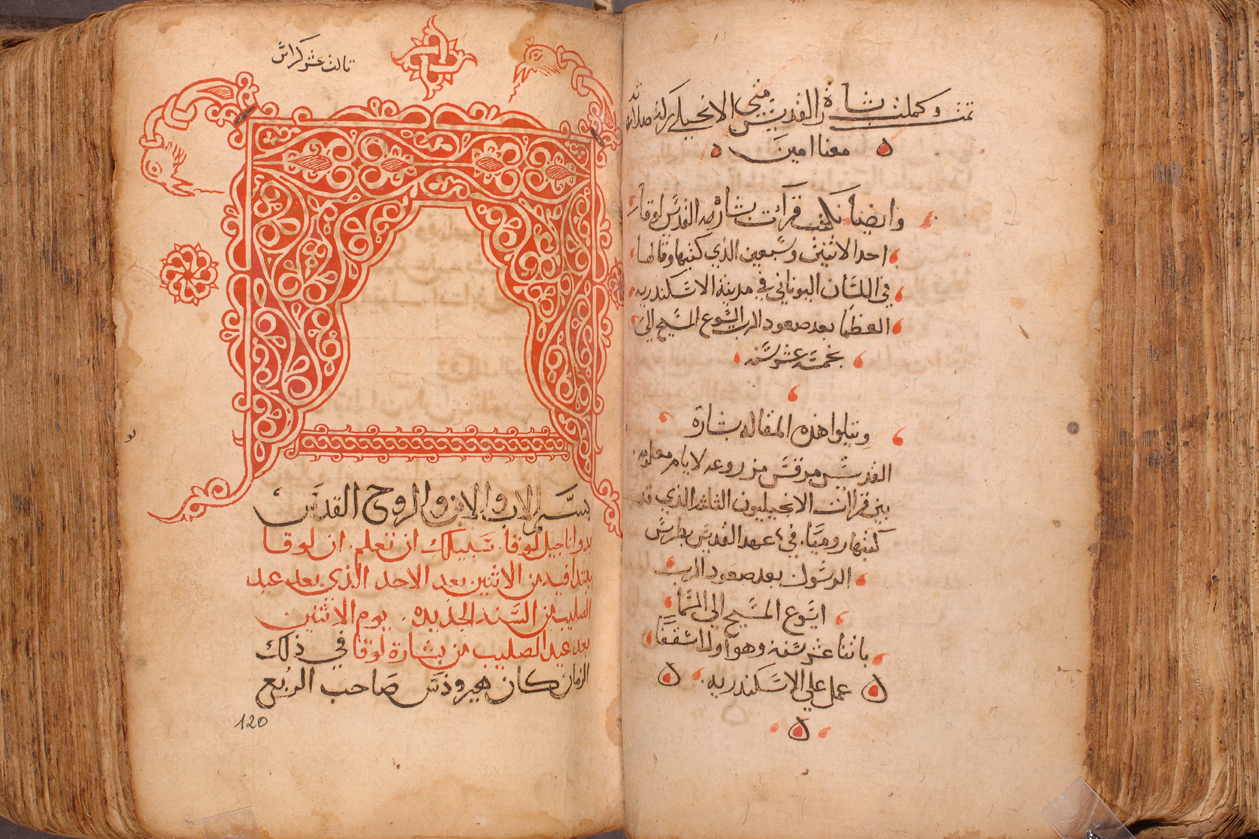 تمت وكملت بشارة القديس متي الانجيلي بركة صلاته
معنا امين
وايضا نكتب قرآت بشارة القديس لوقا
احد الاثنين وسبعين الذي كتبها وقالها
في اللسان اليوناني في مدينة الاسكندريه
العظما بعد صعود الرب ايسوع المسيح الي
بخمسة عشر سنه
ويتلوا هذه المقاله بشارة
القديس مرقس من
بين قرآت الانجيليون الثلثه الذي قد
كتبها روميًا في عهد القديس بطرس
الرسول بعد صعود الرب
ايسوع المسيح الي السما
باثنا عشر سنه وهو اول اسقفًا
عمل علي الاسكندريه
ثالث عشر كراس
بسم الاب والابن والروح القدس
بدو انجيل لوقا سبيلك ان تعلم ان لوقا
يبتدا فيه من الاثنين بعد الاحد الذي بعد عيد
الصليب من السنه الجديده يوم الاثنين
بعد عيد الصليب من بشارة لوقا في ذلك
الزمان كان هيرودس صاحب الربع
120